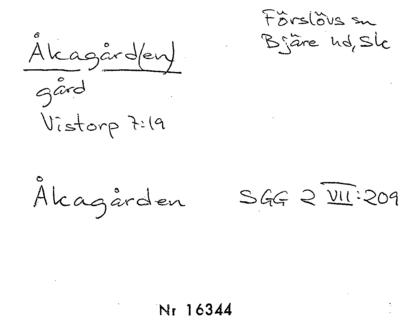 Åkagård(en)
Förslövs sn
Bjäre hd, Sk
gård
Vistorp 7:19
Åkagården SGG 2 VII:209
Nr 16344